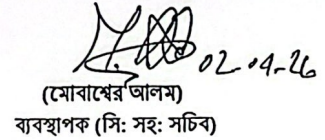 02-04-26
(মোবাশ্বের আলম)
ব্যবস্থাপক (সি: সহ: সচিব)